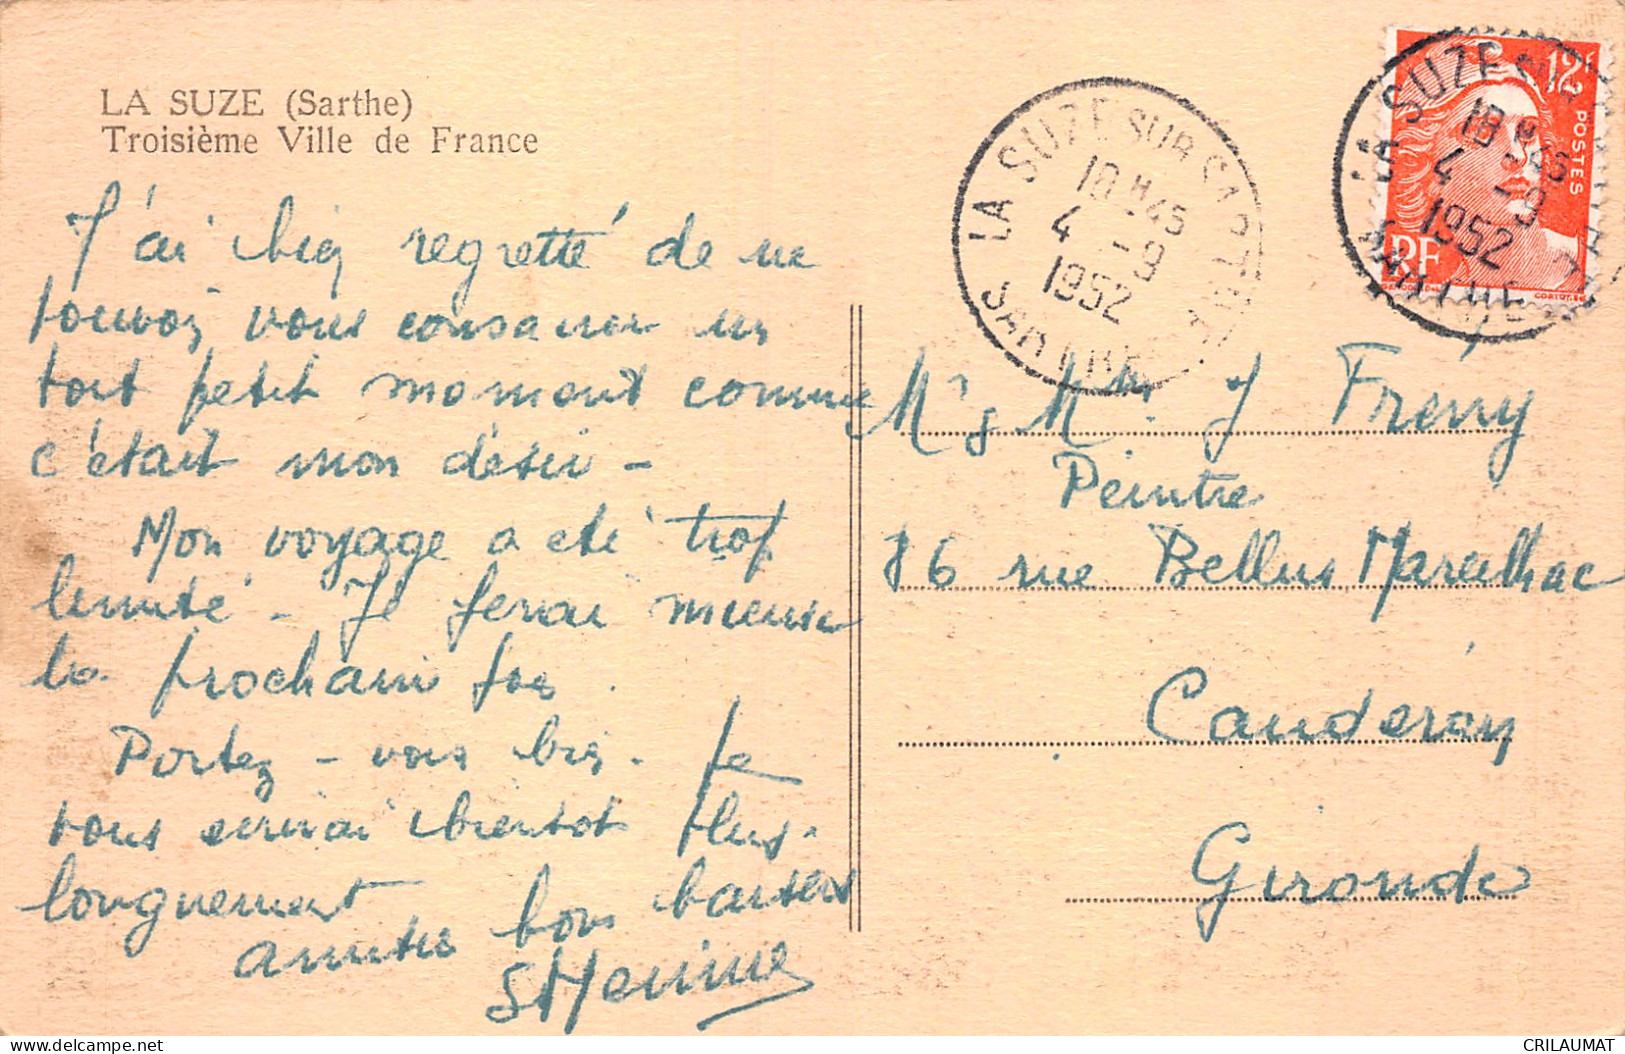 LA SUZE (Sarthe)
Troisième Ville de France
J'ai bien regretté de ne
pouvoir vous consacrer un
tout petit moment comme
c'était mon désir -
Mon voyage a été trop
limité - Je ferai mieux
la prochaine fois.
Portez - vous bien. Je
vous écrirai bientôt plus
longuement
amitiés bons baisers
LA SUZE SUR SARTHE
18 H 45
4 - 9
1952
SARTHE
LA SUZE SUR SARTHE
18 H 45
4 - 9
1952
SARTHE
12F
POSTES
RF
Mr & Mme J Frény
Peintre
86 rue Bellus Mareilhac
Caudéran
Gironde
delcampe.net
CRILAUMAT